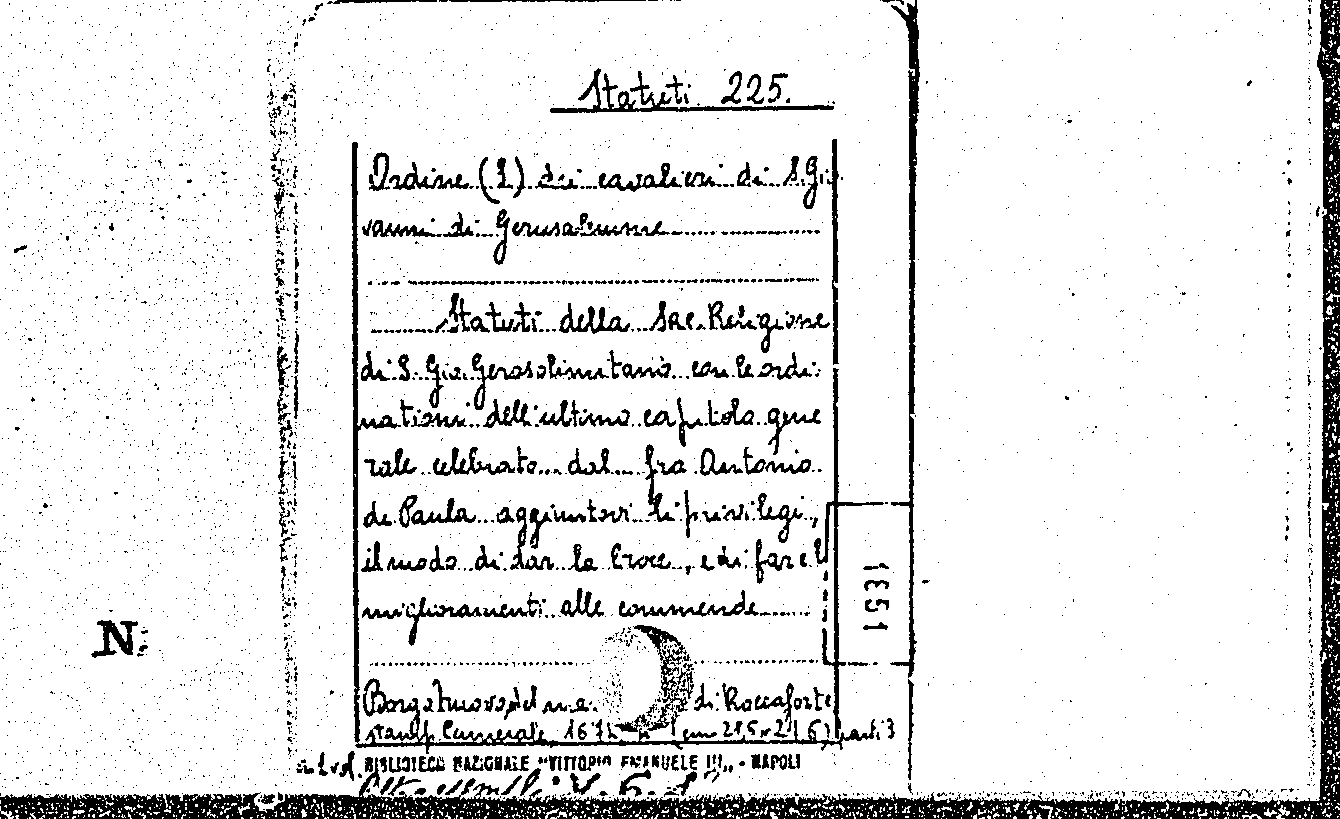 Statuti 225.
Ordine (L) dei cavalieri di S. Gio
vanni di Gerusalemme
Statuti della Sac. Religione
di S. Gio. Gerosolimitano con le ordi
nationi dell'ultimo capitolo gene
rale celebrato dal fra Antonio
de Paula aggiuntovi li privilegi,
il modo di dar la Croce, e di fare l
miglioramenti alle commende
Borgo nuovo, del di Roccaforte
stamp. Camerale, 167 parti 3
in 1 vol. BIBLIOTECA NAZIONALE "VITTORIO EMANUELE III" - NAPOLI
N